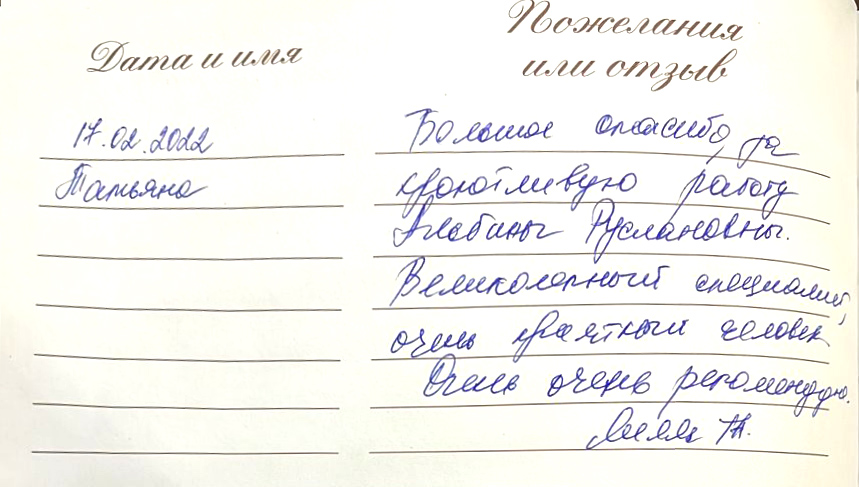 Дата и имя
Пожелания
или отзыв
17.02.2022
Татьяна
Большое спасибо, за
кропотливую работу
Альбины Руслановны.
Великолепный специалист,
очень приятный человек
Очень очень рекомендую.